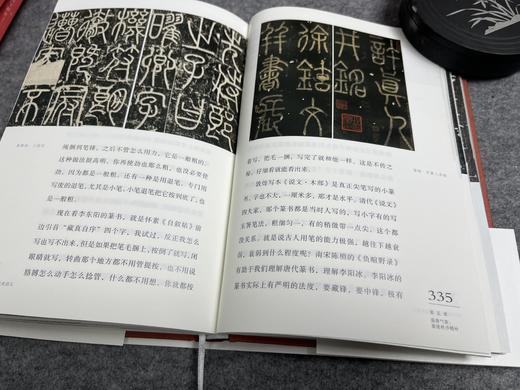 先
之子
曜卿字
不
捆到笔锋，之后不管怎么用力，它是一般粗的。
这种做法挺高明，你再使劲也那么粗，也没必要使
劲，因为都是一般粗。还有一种是用退笔，专门用
写废的退笔，尤其是小笔，小笔退笔把它按到底了，也
是一般粗。
现在看李东阳的篆书，就是怀素《自叙帖》前
边引首“藏真自序”四个字，我试过，反正我怎么
仿也写不出来，但是如果把笔毛捆上，按倒了就写，闭
眼睛就写，转曲那个地方都不用管提按，也不用说
胳膊怎么动手怎么捻管，什么都不用想，
許真人
井銘
徐鉉文
并書篆
着写，把毛一捆，写完了就和他一样，这是不传之
秘，仔细看就能看出来。
敦煌写本《说文·木部》是真正尖笔写的小篆
书，字也不大，一厘米多，那才是水平。清代《说文》
四大家，那个篆书都是当时人写的，写小字有的写
玉箸笔法，粗细匀一，有的稍微带一点尖，这都
没啥关系。就是说古人用笔的能力极强，越往下越衰
弱，衰弱到什么程度呢？南宋陈槱的《负暄野录》
有助于我们理解唐代篆书，理解李阳冰，李阳冰的
篆书实际上有严明的法度，要藏锋，要中锋，极有
335